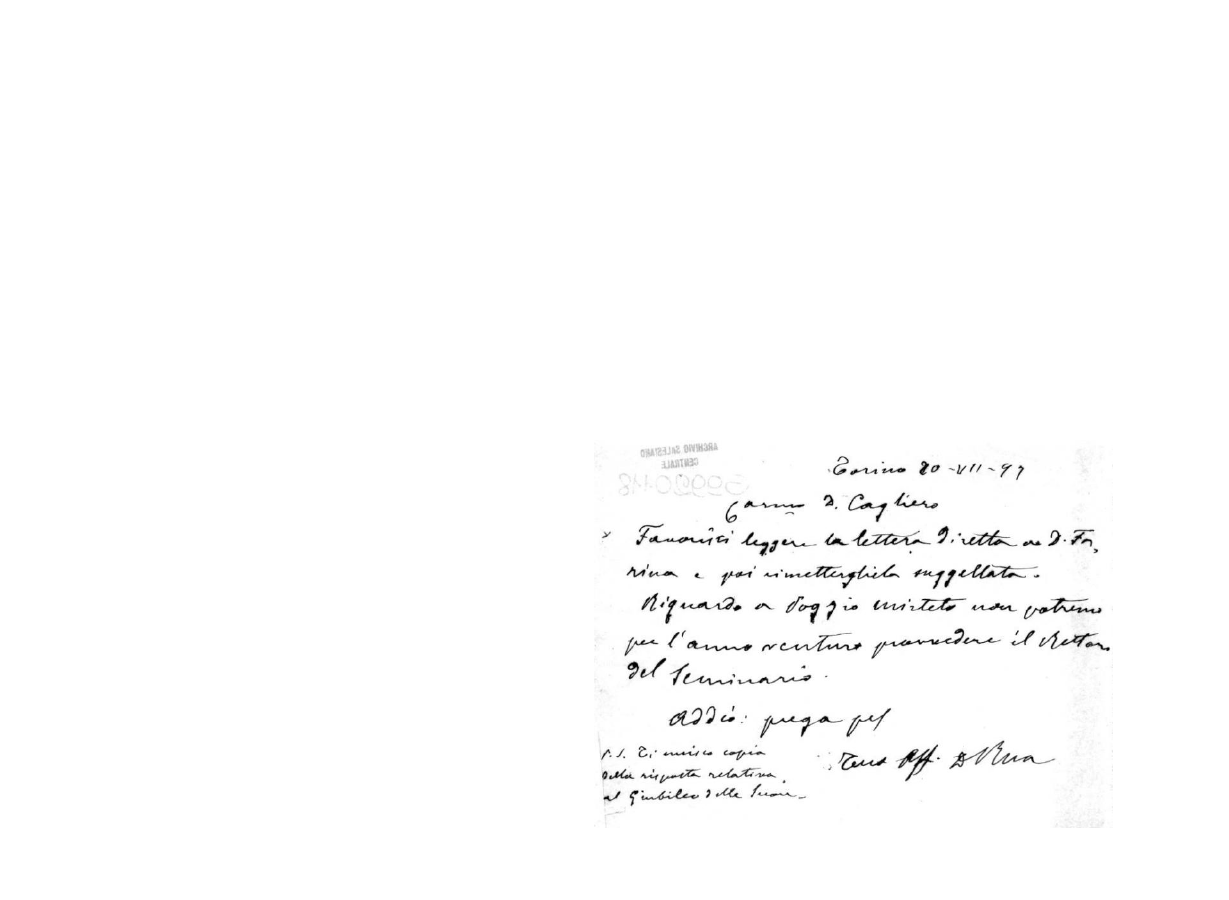 ARCHIVIO SALESIANO
CENTRALE
Torino 20-VII-97
Carmo D. Cagliero
Favorisci leggere la lettera diretta a D. Fa,
rina e poi rimettergliela suggellata.
Riguardo a Poggio mirteto non potremo
per l'anno venturo provvedere il Rettore
del Seminario.
Addio: prega pel
Tuo Aff. D Rua
P.S. Ti unisco copia
della risposta relativa
al Giubileo delle Suore